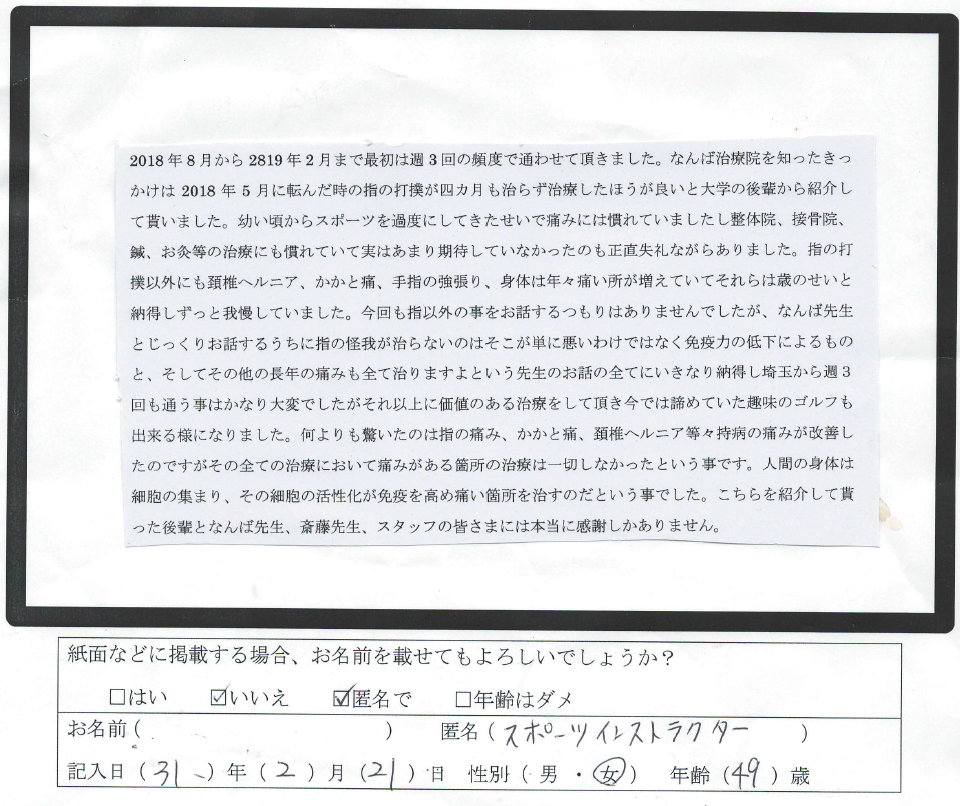 2018年8月から2819年2月まで最初は週3回の頻度で通わせて頂きました。なんば治療院を知ったきっ
かけは2018年5月に転んだ時の指の打撲が四カ月も治らず治療したほうが良いと大学の後輩から紹介し
て貰いました。幼い頃からスポーツを過度にしてきたせいで痛みには慣れていましたし整体院、接骨院、
鍼、お灸等の治療にも慣れていて実はあまり期待していなかったのも正直失礼ながらありました。指の打
撲以外にも頚椎ヘルニア、かかと痛、手指の強張り、身体は年々痛い所が増えていてそれらは歳のせいと
納得しずっと我慢していました。今回も指以外の事をお話するつもりはありませんでしたが、なんば先生
とじっくりお話するうちに指の怪我が治らないのはそこが単に悪いわけではなく免疫力の低下によるもの
と、そしてその他の長年の痛みも全て治りますよという先生のお話の全てにいきなり納得し埼玉から週3
回も通う事はかなり大変でしたがそれ以上に価値のある治療をして頂き今では諦めていた趣味のゴルフも
出来る様になりました。何よりも驚いたのは指の痛み、かかと痛、頚椎ヘルニア等々持病の痛みが改善し
たのですがその全ての治療において痛みがある箇所の治療は一切しなかったという事です。人間の身体は
細胞の集まり、その細胞の活性化が免疫を高め痛い箇所を治すのだという事でした。こちらを紹介して貰
った後輩となんば先生、斎藤先生、スタッフの皆さまには本当に感謝しかありません。
紙面などに掲載する場合、お名前を載せてもよろしいでしょうか？
□はい ☑いいえ ☑匿名で □年齢はダメ
お名前（ ） 匿名（スポーツインストラクター ）
記入日（31 ）年（2）月（21）日 性別（男・女） 年齢（49）歳